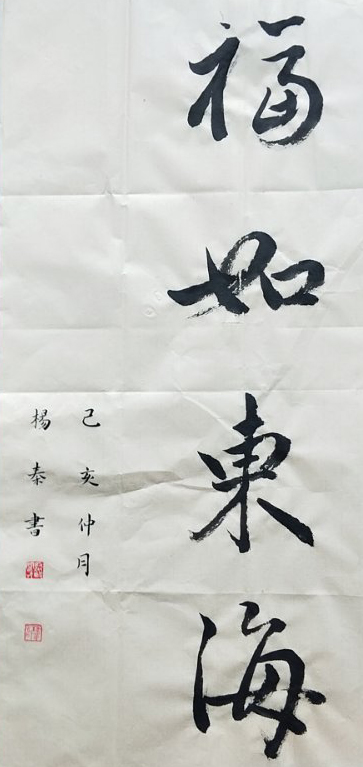 福如東海
己亥仲月
楊泰書